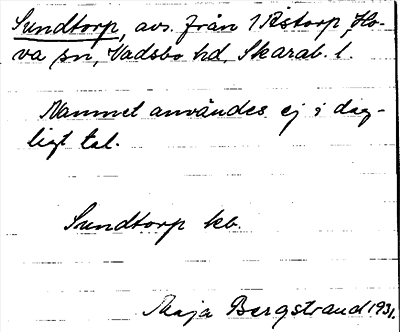 Sundtorp, avs. från 1 Åstorp, Ho-
va sn, Vadsbo hd, Skarab. l.
Namnet användes ej i dag-
ligt tal.
Sundtorp kb.
Maja Bergstrand 1931.